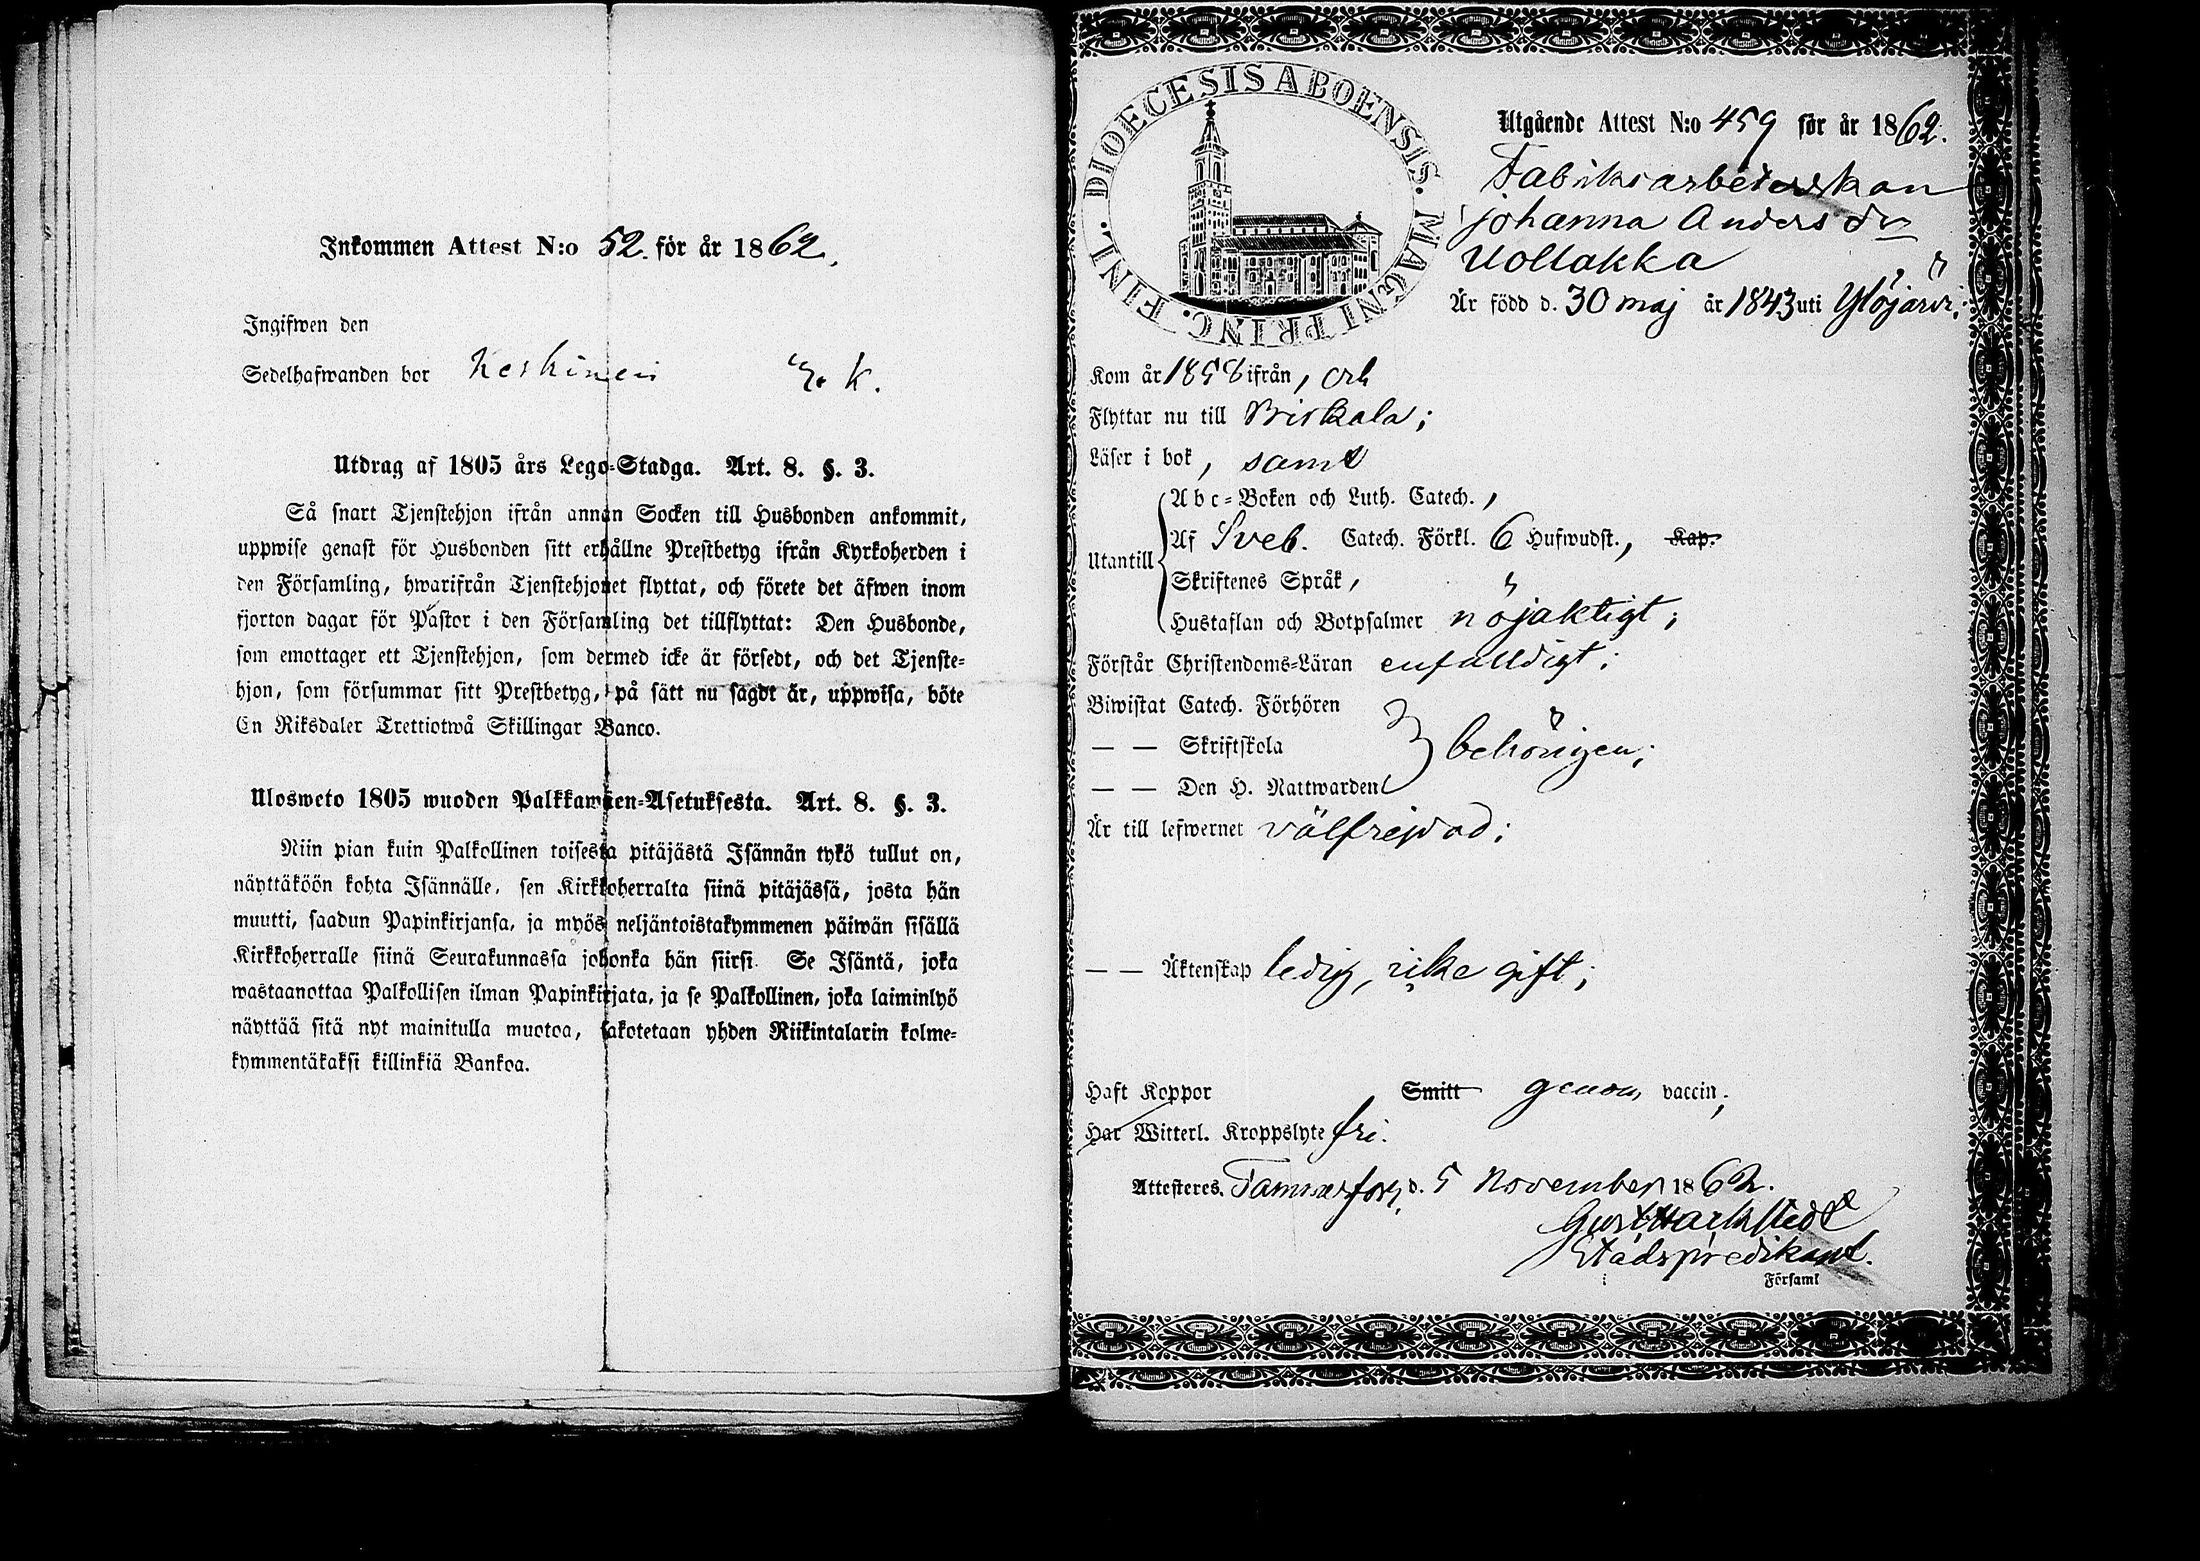 Inkommen Attest N:o 52. för år 1862.
Ingifwen den
Sedelhafwanden bor Keskinen K.
Utdrag af 1805 års Lego-Stadga. Art. 8. §. 3.
Så snart Tjenstehjon ifrån annan Socken till Husbonden ankommit,
uppwise genast för Husbonden sitt erhållne Prestbetyg ifrån Kyrkoherden i
den Församling, hwarifrån Tjenstehjonet flyttat, och förete det äfwen inom
fjorton dagar för Pastor i den Församling det tillflyttat: Den Husbonde,
som emottager ett Tjenstehjon, som dermed icke är försedt, och det Tjenste-
hjon, som försummar sitt Prestbetyg, på sätt nu sagdt är, uppwisa, böte
En Riksdaler Trettiotwå Skillingar Banco.
Ulosweto 1805 wuoden Palkkawäen-Asetuksesta. Art. 8. §. 3.
Niin pian kuin Palkollinen toisesta pitäjästä Isännän tykö tullut on,
näyttäköön kohta Isännälle, sen Kirkkoherralta siinä pitäjässä, josta hän
muutti, saadun Papinkirjansa, ja myös neljäntoistakymmenen päiwän sisällä
Kirkkoherralle siinä Seurakunnassa johonka hän siirsi. Se Isäntä, joka
wastaanottaa Palkollisen ilman Papinkirjata, ja se Palkollinen, joka laiminlyö
näyttää sitä nyt mainitulla muotoa, sakotetaan yhden Riikintalarin kolme-
kymmentäkaksi killinkiä Bankoa.
DIOECESIS ABOENSIS. MAGNI PRINC. FINL.
Utgående Attest N:o 459 för år 1862.
Fabriksarbeterskan
Johanna Anders dr
Uollakka
Är född d. 30 maj år 1843 uti Ylöjärvi;
Kom år 1858 ifrån, och
Flyttar nu till Birkala;
Läser i bok, samt
Utantill
Abc-Boken och Luth. Catech.,
Af Sveb. Catech. Förkl. 6 Hufwudst., Kap.
Skriftenes Språk,
Hustaflan och Botpsalmer nöjaktigt;
Förstår Christendoms-Läran enfaldigt;
Biwistat Catech. Förhören
— — Skriftskola behörigen;
— — Den H. Nattwarden
Är till lefwernet välfrejdad;
— — Äktenskap ledig, icke gift;
Haft Koppor Smitt genom vaccin;
Har Witterl. Kroppslyte fri.
Attesteres. Tammerfors, d. 5 November 1862.
Stadspredikant.
Församl